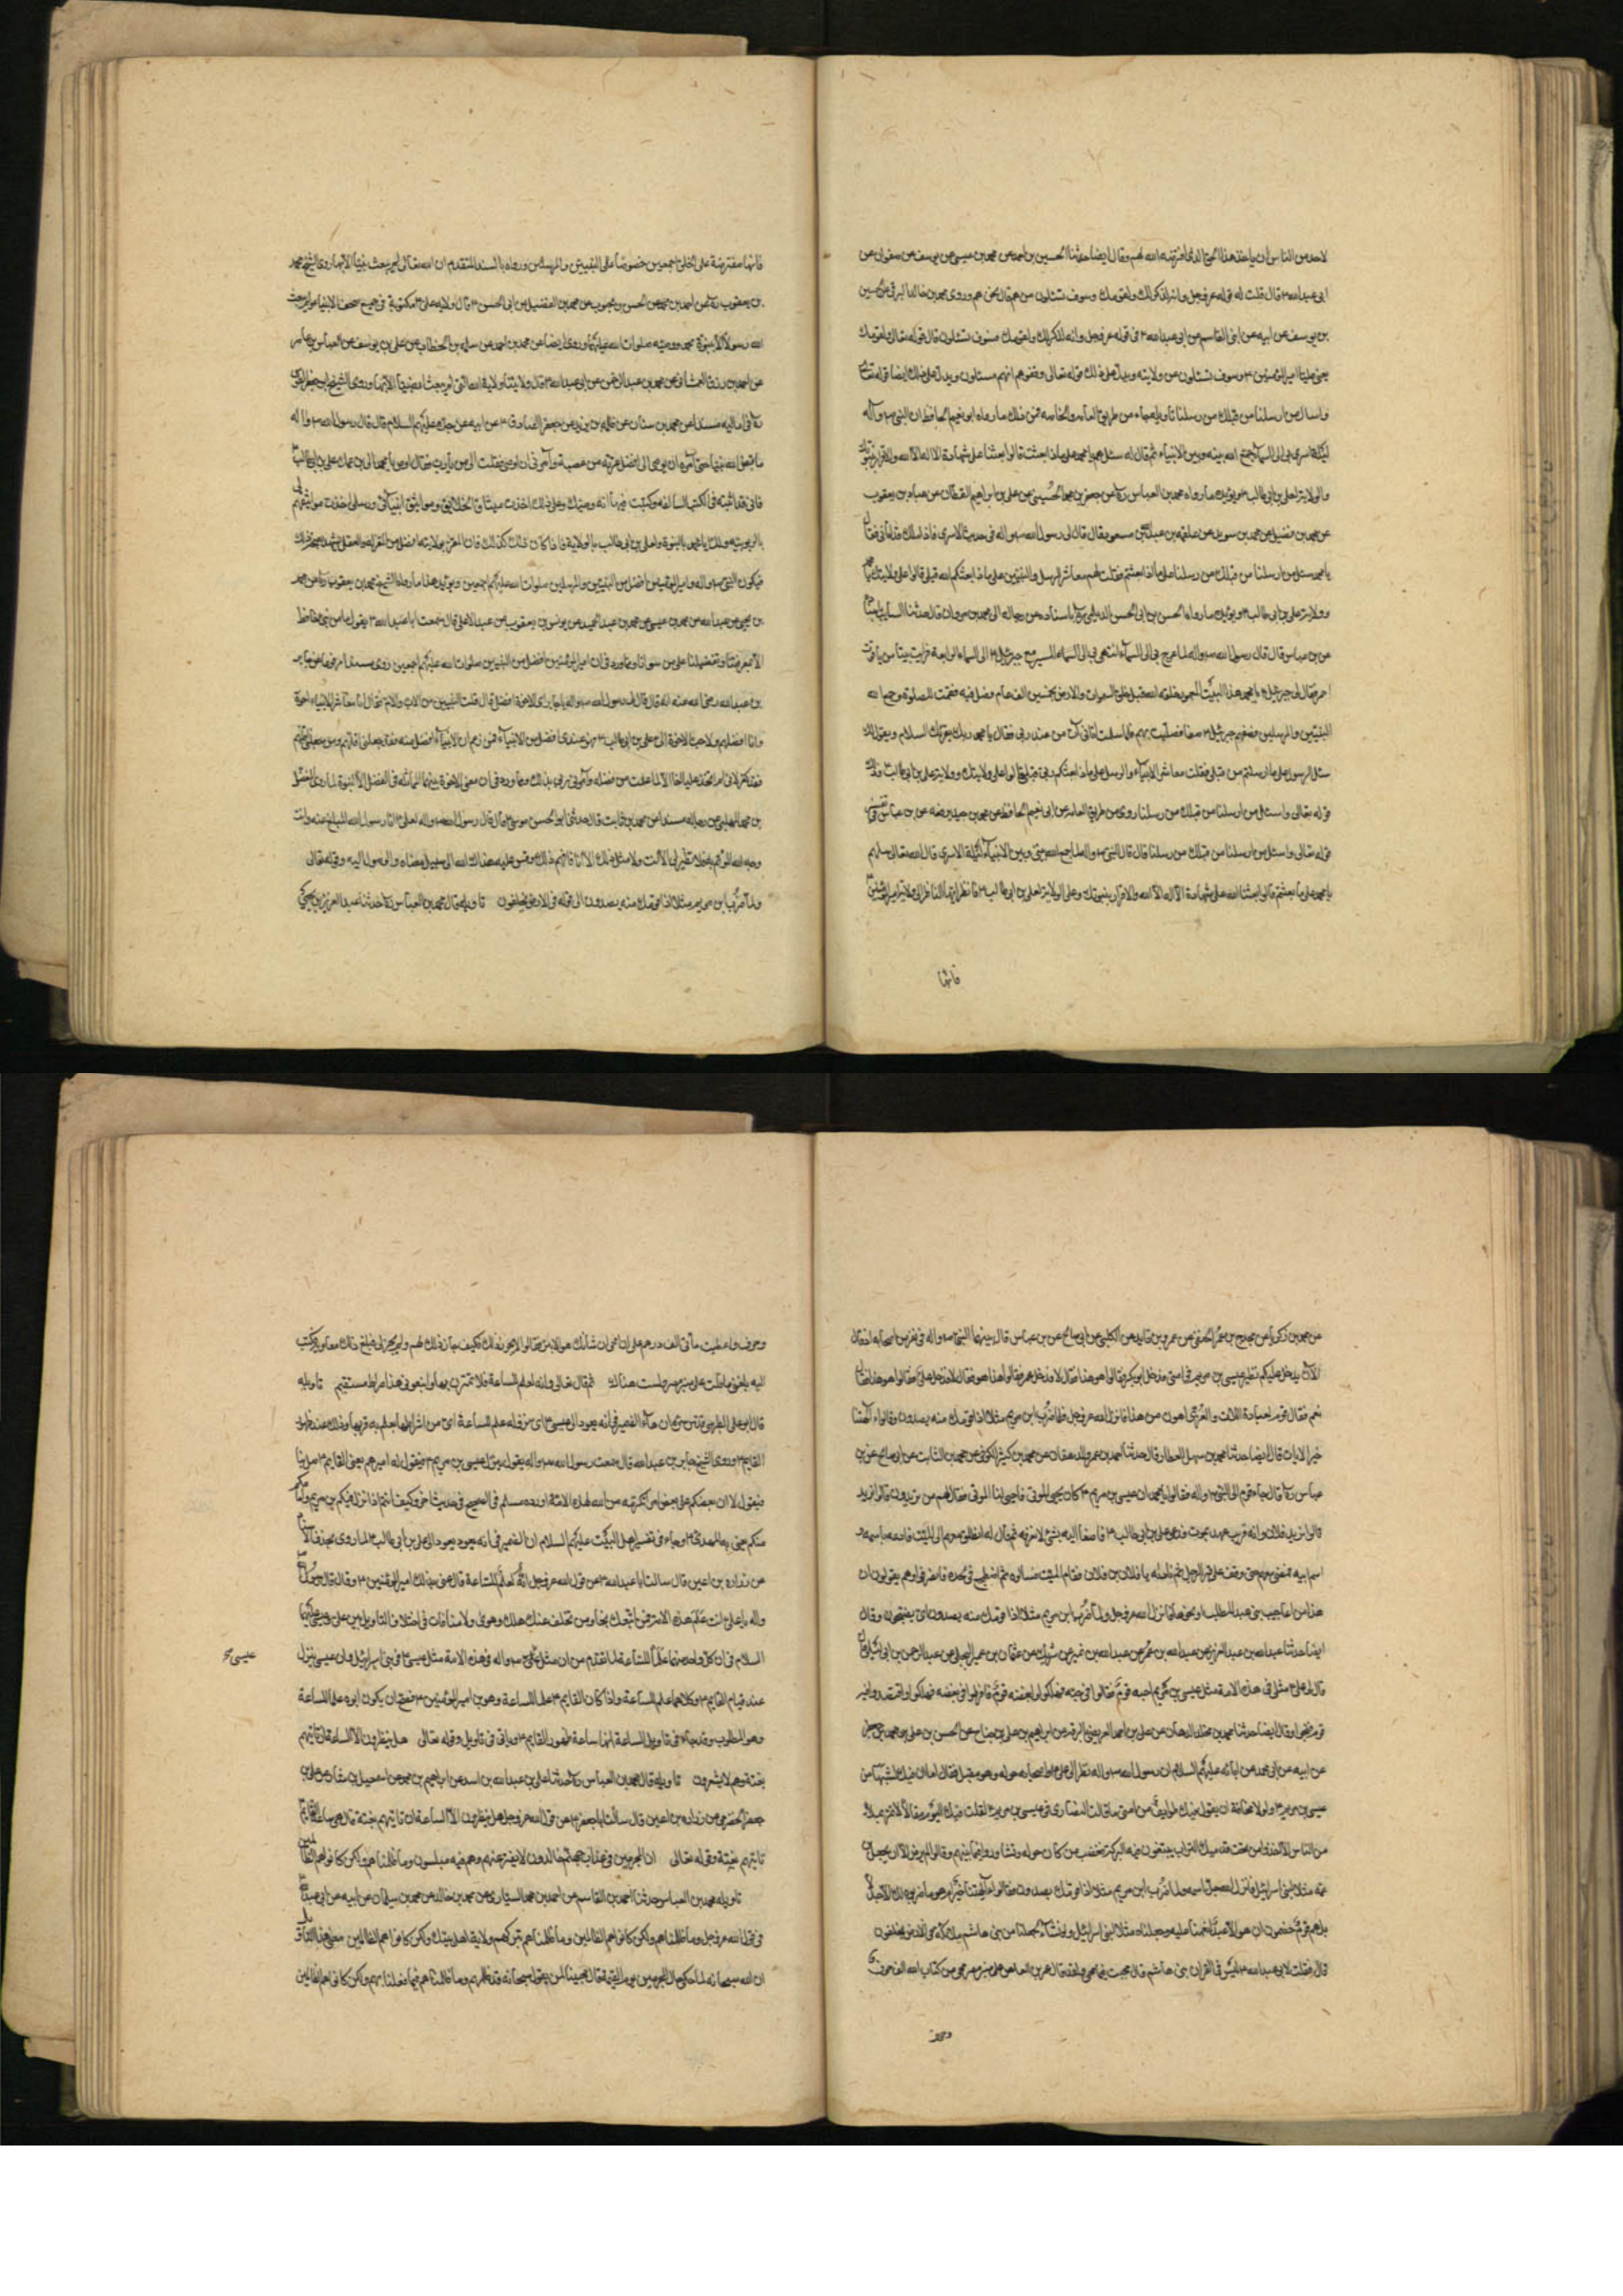 لاحد من الناس ان ياخذ هذا الحق الذي افترضه الله لهم وقال ايضا حدثنا الحسين بن احمد عن محمد بن عيسى عن يوسف عن صفوان عن
ابي عبدالله ٤ قال قلت له قوله عز وجل وانه لذكر لك ولقومك وسوف تسئلون من هم قال نحن هم وروى محمد بن خالد البرقي عن الحسين
بن يوسف عن ابيه عن ابني القاسم عن ابي عبدالله ٤ في قوله عز وجل وانه لذكر لك ولقومك فسوف تسئلون قال قوله تعالى ولقومك
يعني عليا امير المؤمنين ٤ وسوف تسئلون عن ولايته ويدل على ذلك قوله تعالى وقفوهم انهم مسئولون ويدل على ذلك ايضا قوله تعالى
واسال من ارسلنا من قبلك من رسلنا تاويله جاء من طريق العامة والخاصة فمن ذلك ما رواه ابو نعيم الحافظ ان النبي ص وآله
ليلة اسرى بي الى السماء جمع الله بينه وبين الانبياء ثم قال له سئلهم يا محمد على ماذا بعثتم قالوا بعثنا على شهادة ان لا اله الا الله والاقرار بنبوتك
والولاية لعلي بن ابي طالب ٤ ويؤيده ما رواه محمد بن العباس ره عن جعفر بن محمد الحسيني عن علي بن ابراهيم القطان عن عباد بن يعقوب
عن محمد بن فضيل عن محمد بن سويد عن علقمه عن عبد الله بن مسعود قال قال لي رسول الله ص واله في حديث الاسرى فاذا ملك قد اتاني فقال
يا محمد سئل من ارسلنا من قبلك من رسلنا على ماذا بعثتم فقلت لهم معاشر الرسل والنبيين على ماذا بعثكم الله قبلي قالوا على ولايتك يا محمد
وولاية علي بن ابي طالب ٤ ويؤيده ما رواه الحسن بن ابي الحسن الديلمي ره باسناده عن رجاله الى محمد بن مروان قال حدثنا السايب
عن بن عباس قال قال رسول الله ص واله لما عرج بي الى السماء انتهى بي الى السماء المسير مع جبرئيل ٤ الى السماء الرابعة فرايت بيتا من ياقوت
احمر فقال لي جبرئيل ٤ يا محمد هذا البيت المعمور خلقه الله قبل خلق السموات والارض بخمسين الف عام وصل فيه فقمت للصلوة وجمع الله
النبيين والمرسلين فصفهم جبرئيل ٤ صفا فصليت بهم فلما سلمت اتاني آت من عند ربي فقال يا محمد ربك يقرئك السلام ويقول لك
سئل الرسل على ما ارسلتم من قبلي فقلت معاشر الانبياء والرسل على ماذا بعثكم ربي قبلي قالوا على ولايتك وولاية علي بن ابي طالب ٤ وذلك
قوله تعالى واسئل من ارسلنا من قبلك من رسلنا روى من طريق العامه عن ابي نعيم الحافظ عن محمد بن حميد يرفعه عن بن عباس في تفسير
قوله تعالى واسئل من ارسلنا من قبلك من رسلنا قال قال النبي ص واله لما جمع الله بيني وبين الانبياء ليلة الاسرى قال الله تعالى سلهم
يا محمد على ما بعثتم قالوا بعثنا الله على شهادة ان لا اله الا الله والاقرار بنبوتك وعلى الولاية لعلي بن ابي طالب ٤ فانظر ايها الناظر الى ولاية امير المؤمنين ٤
فانها
فانها مفترضة على الخلق اجمعين خصوصا على النبيين والمرسلين ورواه بالسند المتقدم ان الله تعالى لم يبعث نبيا الا بها روى الشيخ محمد
بن يعقوب ره عن احمد بن محمد عن الحسن بن محبوب عن محمد بن الفضيل عن ابي الحسن ٤ قال ولاية علي ٤ مكتوبة في جميع صحف الانبياء ولم يبعث
الله رسولا الا بنبوة محمد ووصيه صلوات الله عليهما وروى ايضا عن محمد بن احمد عن سلمه بن الخطاب عن علي بن يوسف عن العباس بن عامر
عن احمد بن رزق الغمشاني عن محمد بن عبد الرحمن عن ابي عبدالله ٤ قال ولايتنا ولاية الله التي لم يبعث نبيا الا بها وروى الشيخ ابو جعفر الطوسي
ره في اماليه مسندا عن محمد بن سنان عن طلحه بن زيد عن جعفر الصادق ٤ عن ابيه عن جده عليهم السلام قال قال رسول الله ص واله
ما قبض الله نبيا حتى امره ان يوصي الى افضل عترته من عصبة وامرني ان اوصي فقلت الى من يا رب فقال اوص يا محمد الى بن عمك علي بن ابي طالب ٤
فاني قد اثبته في الكتب السالفه وكتبت فيها انه وصيك وعلى ذلك اخذت ميثاق الخلايق ومواثيق انبيائي ورسلي اخذت مواثيقهم لي
بالربوبيه ولك يا محمد بالنبوة ولعلي بن ابي طالب بالولاية فاذا كان ذلك كذلك
فيكون النبي ص واله وامير المؤمنين افضل من النبيين والمرسلين صلوات الله عليهم اجمعين ويؤيد هذا ما رواه الشيخ محمد بن يعقوب ره عن محمد
بن يحيى عن عبدالله بن محمد بن عيسى عن محمد بن عبد الحميد عن يونس بن يعقوب عن عبد الاعلى قال سمعت ابا عبد الله ٤ يقول ما من نبي جاء قط
الا بمعرفة حقنا وتفضيلنا على من سوانا ومما ورد في ان امير المؤمنين افضل من النبيين صلوات الله عليهم اجمعين روى مسندا مرفوعا عن جابر
بن عبدالله رضي الله عنه انه قال قال لي رسول الله ص واله يا جابر اي الاخوة افضل قال قلت النبيين من الاب والام فقال انا معاشر الانبياء اخوة
وانا افضلهم ولاحب الاخوة الي علي بن ابي طالب ٤ فهو عندي افضل من الانبياء فمن زعم ان الانبياء افضل منه فقد جعلني اقلهم ومن جعلني اقلهم
فقد كفر لاني لم اتخذ عليا اخا الا لما علمت من فضله وامرني ربي بذلك ومما ورد في ان معنى الاخوة بينهما المماثلة في الفضل الا النبوة لما روى المفضل
بن محمد المهلبي عن رجاله مسندا عن محمد بن ثابت قال حدثني ابو الحسن موسى ٤ قال قال رسول الله ص واله لعلي ٤ انا رسول الله المبلغ عنه وانت
وجه الله المؤتم به فلا نظير لي الا انت ولا مثل لك الا انا فافهم ذلك وقس عليه هداك الله الى سبيل رضاه والوصول اليه وقوله تعالى
ولما ضرب ابن مريم مثلا اذا قومك منه يصدون الى قوله في الارض يخلفون تاويله قال محمد بن العباس ره حدثنا عبد العزيز بن يحيى
عن محمد بن زكريا عن مجدح بن عمر الحنفي عن عمرو بن قايد عن الكلبي عن ابي صالح عن بن عباس قال بينما النبي ص واله في نفر من اصحابه اذ قال
الآن يدخل عليكم نظير عيسى بن مريم في امتي فدخل ابو بكر فقالوا هو هذا فقال لا فدخل عمر فقالوا هذا هو فقال لا فدخل علي ٤ فقالوا هو هذا فقال
نعم فقال قوم لعبادة اللات والعزى اهون من هذا فانزل الله عز وجل ولما ضرب ابن مريم مثلا اذا قومك منه يصدون وقالوا ءآلهتنا
خير الايات قال ايضا حدثنا محمد بن سهل العطار قال حدثنا احمد بن عمر الدهقان عن محمد بن كثير الكوفي عن محمد بن السائب عن ابي صالح عن بن
عباس ره قال جاء قوم الى النبي ص واله فقالوا يا محمد ان عيسى بن مريم ٤ كان يحيي الموتى فاحيي لنا الموتى فقال لهم من تريدون قالوا نريد
قالوا نريد فلانا وانه قريب عهد بموت فدعى علي بن ابي طالب ٤ فاصغى اليه بشئ لا نعرفه ثم قال له انطلق معهم الى الميت فادعه باسمه و
اسم ابيه فمضى معهم حتى وقف على قبر الرجل ثم ناداه يا فلان بن فلان فقام الميت فسالوه ثم اضطجع في لحده فانصرفوا وهم يقولون ان
هذا من اعاجيب بني عبد المطلب او نحوها فانزل الله عز وجل ولما ضرب ابن مريم مثلا اذا قومك منه يصدون اي يضجون وقال
ايضا حدثنا عبدالله بن عبد العزيز عن عبدالله بن عمر عن عبدالله بن نمير عن شريك عن عثمان بن عمير البجلي عن عبد الرحمن بن ابي ليلى قال
قال لي علي ٤ مثلي في هذه الامة مثل عيسى بن مريم احبه قوم فغالوا في حبه فهلكوا وابغضه قوم فافرطوا في بغضه فهلكوا واقتصد فيه
قوم فنجوا وقال ايضا حدثنا محمد بن مخلد الدهان عن علي بن احمد العريضي بالرقه عن ابراهيم بن علي بن جناح عن الحسن بن علي بن محمد بن جعفر
عن ابيه عن ابي محمد عن ابائه عليهم السلام ان رسول الله ص واله نظر الى علي ٤ واصحابه حوله وهو مقبل فقال اما ان فيك لشبها من
عيسى بن مريم ٤ ولولا مخافة ان يقول فيك طوايف من امتي ما قالت النصارى في عيسى بن مريم ٤ لقلت فيك اليوم مقالا لا تمر بملا
من الناس الا اخذوا من تحت قدميك التراب يبتغون فيه البركة فغضب من كان حوله وتشاوروا فيما بينهم وقالوا لم يرض الا ان يجعل بن
عمه مثلا لبني اسرائيل فانزل الله جل اسمه ولما ضرب ابن مريم مثلا اذا قومك يصدون وقالوا ءآلهتنا خير ام هو ما ضربوه لك الا جدلا
بل هم قوم خصمون ان هو الا عبد انعمنا عليه وجعلناه مثلا لبني اسرائيل ولو نشاء لجعلنا من بني هاشم ملائكة في الارض يخلفون
قال فقلت لابي عبدالله ٤ ليس في القرآن بني هاشم قال محيت فيما محي ولقد قال عمر بن العاص على منبر مصر محي من كتاب الله الف حرف
وحرف
وحرف واعطيت مأتي الف درهم على ان امحي ان شانئك هو الابتر فقالوا لا يجوز ذلك فكيف جاز ذلك لهم ولم يجز لي فبلغ ذلك معاويه فكتب
اليه بلغني ما قلت على منبر مصر ولست هناك ثم قال تعالى وانه لعلم للساعة فلا تمترن بها واتبعوني هذا صراط مستقيم تاويله
قال ابو علي الطبرسي قدس سره ان هاء الضمير في انه يعود الى عيسى ٤ اي نزوله علم للساعة اي من اشراطها يعلم به قربها وذلك عند ظهور
القايم ٤ وروى الشيخ جابر بن عبدالله قال سمعت رسول الله ص واله يقول ينزل عيسى بن مريم ٤ فيقول له اميرهم يعني القايم ٤ صل بنا
فيقول لا ان بعضكم على بعض امراء تكرمه من الله لهذه الامة اورده مسلم في الصحيح في حديث اخر وكيف انتم اذا نزل فيكم بن مريم وامامكم
منكم يعني به المهدي ٤ وجاء في تفسير اهل البيت عليهم السلام ان الضمير في انه يعود الى علي بن ابي طالب ٤ لما روى بحذف الاسناد
عن زراره بن اعين قال سالت ابا عبدالله ٤ عن قول الله عز وجل انه لعلم للساعة قال عنى بذلك امير المؤمنين ٤ وقال قال رسول الله ص
واله يا علي انت علم هذه الامة فمن اتبعك نجا ومن تخلف عنك هلك وهوى ولا منافات في اختلاف التاويل بين علي وعيسى عليهما
السلام في ان كل واحد منهما علما للساعة لما تقدم من ان مثل علي ص واله في هذه الامة مثل عيسى ٤ في بني اسرائيل وان عيسى ينزل
عيسى ٤
عند قيام القايم ٤ وكلاهما علم للساعة واذا كان القايم ٤ علما للساعة وهو بن امير المؤمنين ٤ فصح ان يكون ابوه علما للساعة
وهو المطلوب وقد جاء في تاويل الساعة انها ساعة ظهور القايم ٤ وياتي في تاويل وقوله تعالى هل ينظرون الا الساعة ان تاتيهم
بغتة وهم لا يشعرون تاويله قال محمد بن العباس ره حدثنا علي بن عبدالله بن اسد عن ابراهيم بن محمد عن اسمعيل بن بشار عن علي بن
جعفر الحضرمي عن زراره بن اعين قال سالت ابا جعفر ٤ عن قول الله عز وجل هل ينظرون الا الساعة ان تاتيهم بغتة قال هي ساعة القايم ٤
تاتيهم بغتة وقوله تعالى ان المجرمين في عذاب جهنم خالدون لا يفتر عنهم وهم فيه مبلسون وما ظلمناهم ولكن كانوا هم الظالمين
تاويله محمد بن العباس حدثنا احمد بن القاسم عن احمد بن محمد السياري عن محمد بن خالد عن محمد بن سليمان عن ابيه عن ابي عبدالله ٤
في قول الله عز وجل وما ظلمناهم ولكن كانوا هم الظالمين وما ظلمناهم بتركهم ولاية اهل بيتك ولكن كانوا هم الظالمين معنى هذا التاويل
ان الله سبحانه لما حكى حال المجرمين يوم القيمة فقال مجيبا لمن يقول سبحانه قد ظلمهم وما ظلمناهم فيما فعلنا بهم ولكن كانوا هم الظالمين